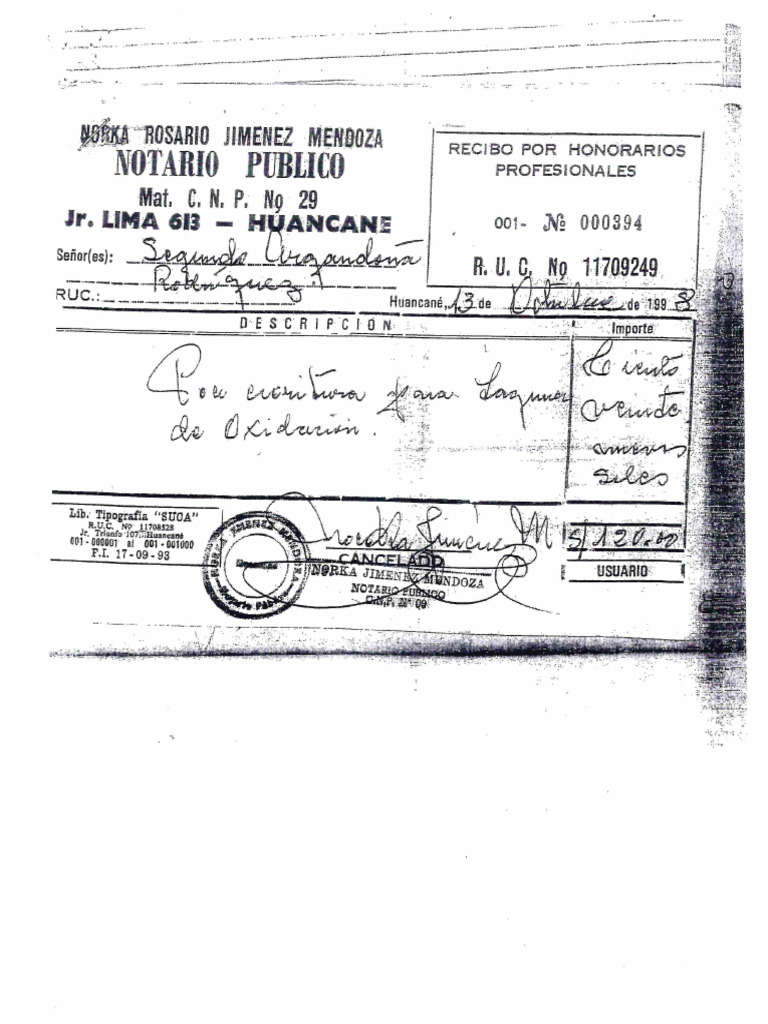 NORKA ROSARIO JIMENEZ MENDOZA
NOTARIO PUBLICO
Mat. C. N. P. No 29
Jr. LIMA 613 — HUANCANE
RECIBO POR HONORARIOS
PROFESIONALES
001- No 000394
R. U. C. No 11709249
Señor(es): Segundo Argandoña
Rodríguez
RUC.:
Huancané, 13 de Octubre de 1998
DESCRIPCION
Importe
Por escritura para Lagunas
de Oxidación.
Ciento
veinte
nuevos
soles
Lib. Tipografía "SUCA"
R.U.C. No 11708528
Jr. Triunfo 107 - Huancané
001-000001 al 001-001000
F.I. 17-09-93
NORKA JIMENEZ MENDOZA
Notario Público
CANCELADO
NORKA JIMENEZ MENDOZA
NOTARIO PUBLICO
C.N.P. Nº 09
S/ 120.00
USUARIO